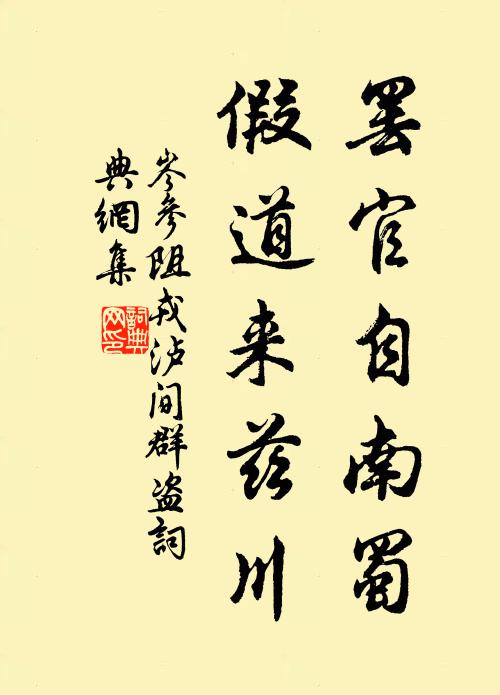 罢官自南蜀
假道来兹川
岑參阻戎泸间群盗詞
典網集
詞典
网印